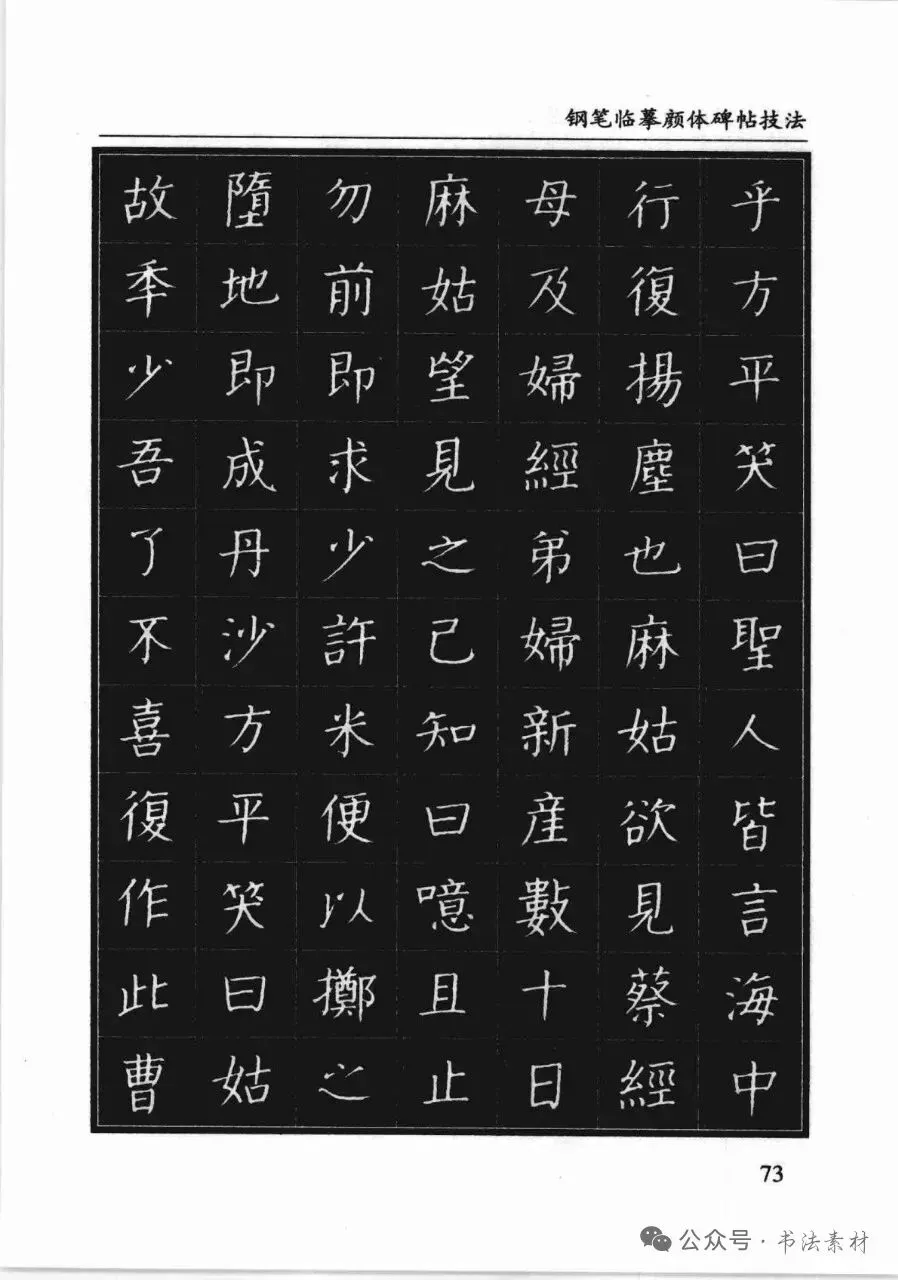 钢笔临摹颜体碑帖技法
乎方平笑曰聖人皆言海中
行復揚塵也麻姑欲見蔡經
母及婦經弟婦新産數十日
麻姑望見之已知曰噫且止
勿前即求少許米便以擲之
墮地即成丹沙方平笑曰姑
故年少吾了不喜復作此曹
73
公众号·书法素材